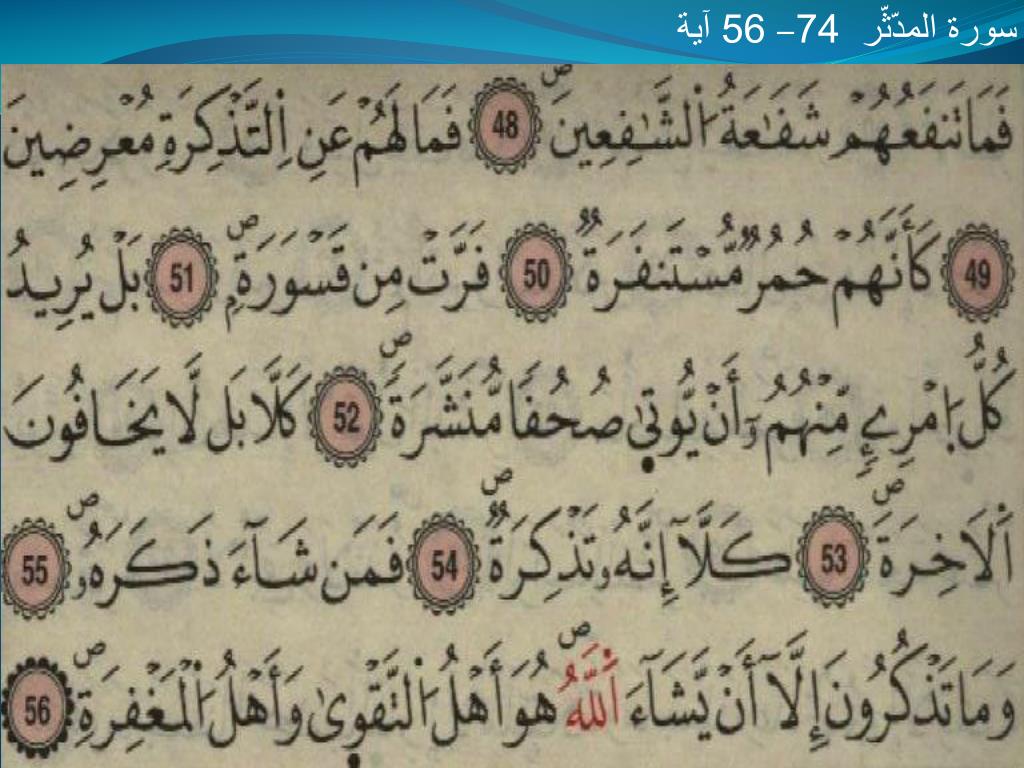 سورة المدّثّر 74– 56 آية
فَمَا تَنفَعُهُمْ شَفَٰعَةُ اُ۬لشَّٰفِعِينَۖ 48 فَمَا لَهُمْ عَنِ اِ۬لتَّذْكِرَةِ مُعْرِضِينَ
49 كَأَنَّهُمْ حُمُرٞ مُّسْتَنفَرَةٞ 50 فَرَّتْ مِن قَسْوَرَةِۖ 51 بَلْ يُرِيدُ
كُلُّ اُ۪مْرِےٕٖ مِّنْهُمُۥٓ أَنْ يُّوت۪يٰ صُحُفاٗ مُّنَشَّرَةٗۖ 52 كَلَّا بَل لَّا يَخَافُونَ
اَ۬لَاخِرَةَۖ 53 كَلَّآ إِنَّهُۥ تَذْكِرَةٞۖ 54 فَمَن شَآءَ ذَكَرَهُۥۖ 55
وَمَا تَذْكُرُونَ إِلَّآ أَنْ يَّشَآءَ اَ۬للَّهُۖ هُوَ أَهْلُ اُ۬لتَّقْو۪يٰ وَأَهْلُ اُ۬لْمَغْفِرَةِۖ 56